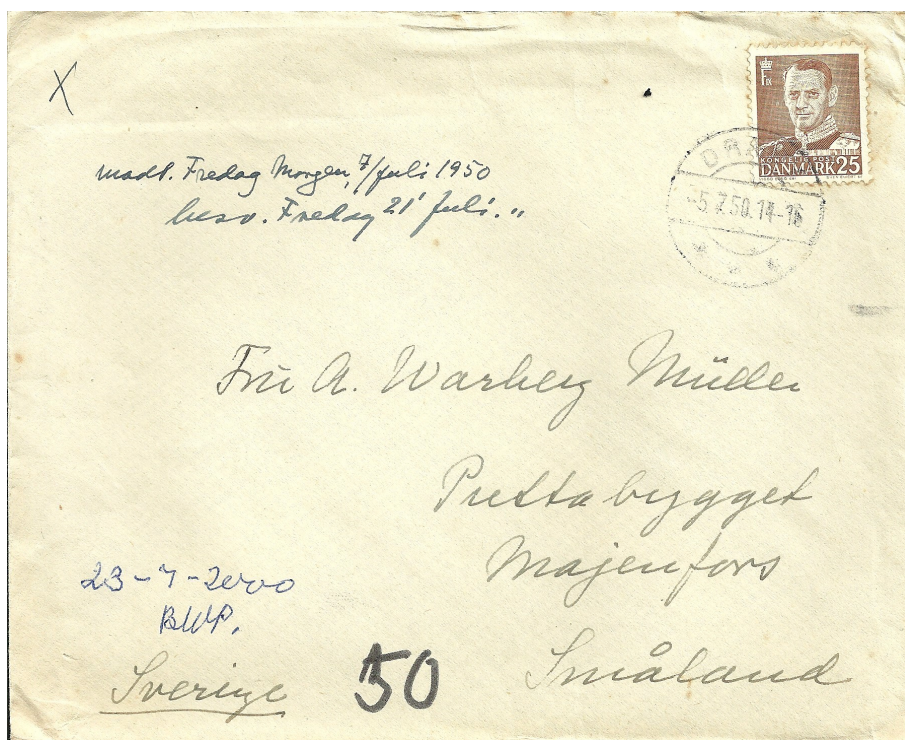 X
modt. Fredag Morgen, 7/Juli 1950
besv. Fredag 21' Juli. "
KONGELIG POST
DANMARK 25
-5.7.50.14-16
Fru A. Warberg Müller
Prettabygget
Majenfors
Småland
23-7-2000
BWP.
Sverige
50